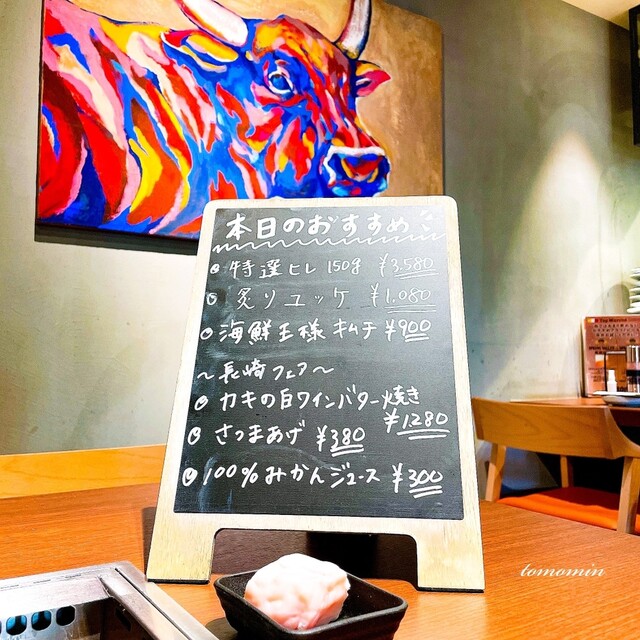 本日のおすすめ
特選ヒレ 150g ¥3,580
炙りユッケ ¥1,080
海鮮王様キムチ ¥900
〜長崎フェア〜
カキの白ワインバター焼き
¥1280
さつまあげ ¥380
100%みかんジュース ¥300
tomomin